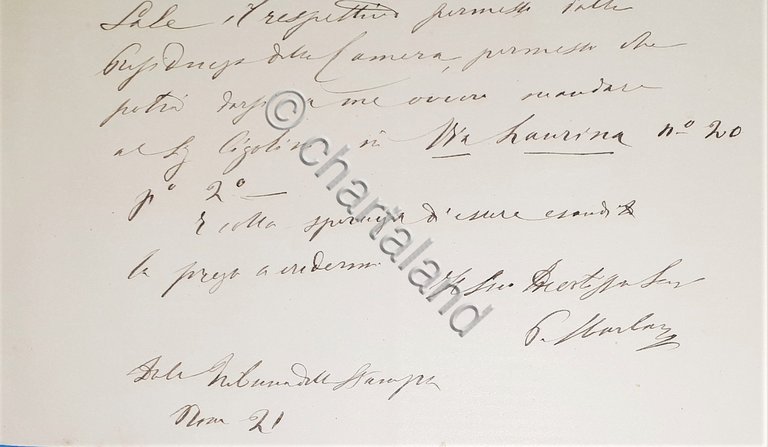 Sale il respettivo permesso dalla
Presidenza della Camera, permesso che
potrà darsi a me ovvero mandare
al Sig Cigolini in Via Laurina nº 20
pº 2º —
E colla speranza d'essere esaudito
la prego a credermi Suo Devotssmo Serv
Dalla Tribuna della Stampa
21
© chartaland